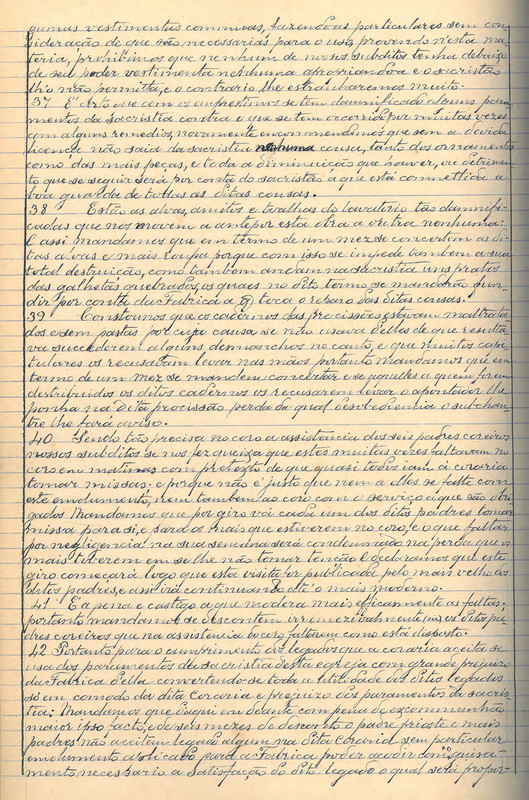 gumas vestimentas commuas, fazendoas particulares sem con-
sideração de que são necessarias para o uso, provendo n'esta ma-
teria, prohibimos que nenhum de nossos subditos tenha debaixo
de seu poder vestimenta nenhuma apropriandoa e o sacristão
lh'o não permitta, e o contrario lhe estranharemos muito.
37 E certo que com os emprestimos se tem damnificado alguns para-
mentos da sacristia contra o que se tem ocorrido por muitas vezes
com alguns remedios, novamente encommendamos que sem a devida
licença não saia da sacristia nenhuma cousa, tanto dos ornamentos
como das mais peças, e toda a diminuição que houver, ou detrimen-
to que se seguir será por conta do sacristão á que está commettida a
boa guarda de todas as ditas cousas.
38 Estão as alvas, amitos e toalhas do lavatorio tão damnifi-
cadas que nos movem a antepor esta obra a outra nenhuma:
E assi mandamos que em termo de um mez se concertem as di-
tas alvas e mais roupa porque com isso se impede tambem a sua
total destruição, como tambem andam na sacristia uns pratos
das galhetas quebrados, os quaes no dito termo se mandarão fun-
dir por conta da Fabrica a q̃ toca o reparo das ditas cousas.
39 Constounos que os cadernos das procissões estavam maltrata-
dos e sem pastas por cuja causa se não usava d'elles de que resulta-
va succederem alguns demanchos no canto, e que muitos capi-
tulares os recusavam levar nas mãos portanto Mandamos que em
termo de um mez se mandem concertar e se aquelles a quem forem
destribuidos os ditos cadernos os recusarem levar o apontador lhe
ponha na dita procissão perda da qual desobediencia o subchan-
tre lhe fará aviso.
40 Sendo tão precisa no coro a assistencia dos seis padres coreiros
nossos subditos se nos fez queixa que estes muitas vezes faltavam no
coro em matinas com pretexto de que quasi todos iam á coraria
tomar missas: e porque não é justo que nem a elles se falte com
este emolumento, nem tambem ao coro com o serviço a que são obri-
gados Mandamos que por giro vá cada um dos ditos padres tomar
missa para si, e para os mais que estiverem no coro, e o que faltar
por negligencia na sua semana será condemnado na perda que os
mais tiverem em se lhe não tomar tenção e declaramos que este
giro começará logo que esta visita for publicada pelo mais velho dos
ditos padres, e assi irá continuando até o mais moderno.
41 E a pena e castigo a que modera mais efficasmente as faltas:
portanto mandamos se descontem irremezivelmente (sic) os ditos pa-
dres coreiros que na assistencia do coro faltarem como está disposto.
42 Portanto para o cumprimento dos legados que a coraria aceita se
usa dos paramentos da sacristia desta egreja com grande prejuizo
da Fabrica d'ella convertendo-se toda a utilidade dos ditos legados
só em comodo da dita Coraria e prejuizo dos paramentos da sacris-
tia: Mandamos que d'aqui em deante com pena de excommunhão
maior ipso facto, e de seis mezes de desconto o padre prioste e mais
padres não aceitem legado algum na dita Coraria sem particular
emolumento aplicado para a Fabrica poder acudir com o guisa-
mento necessario a satisfação do dito legado o qual será propor-